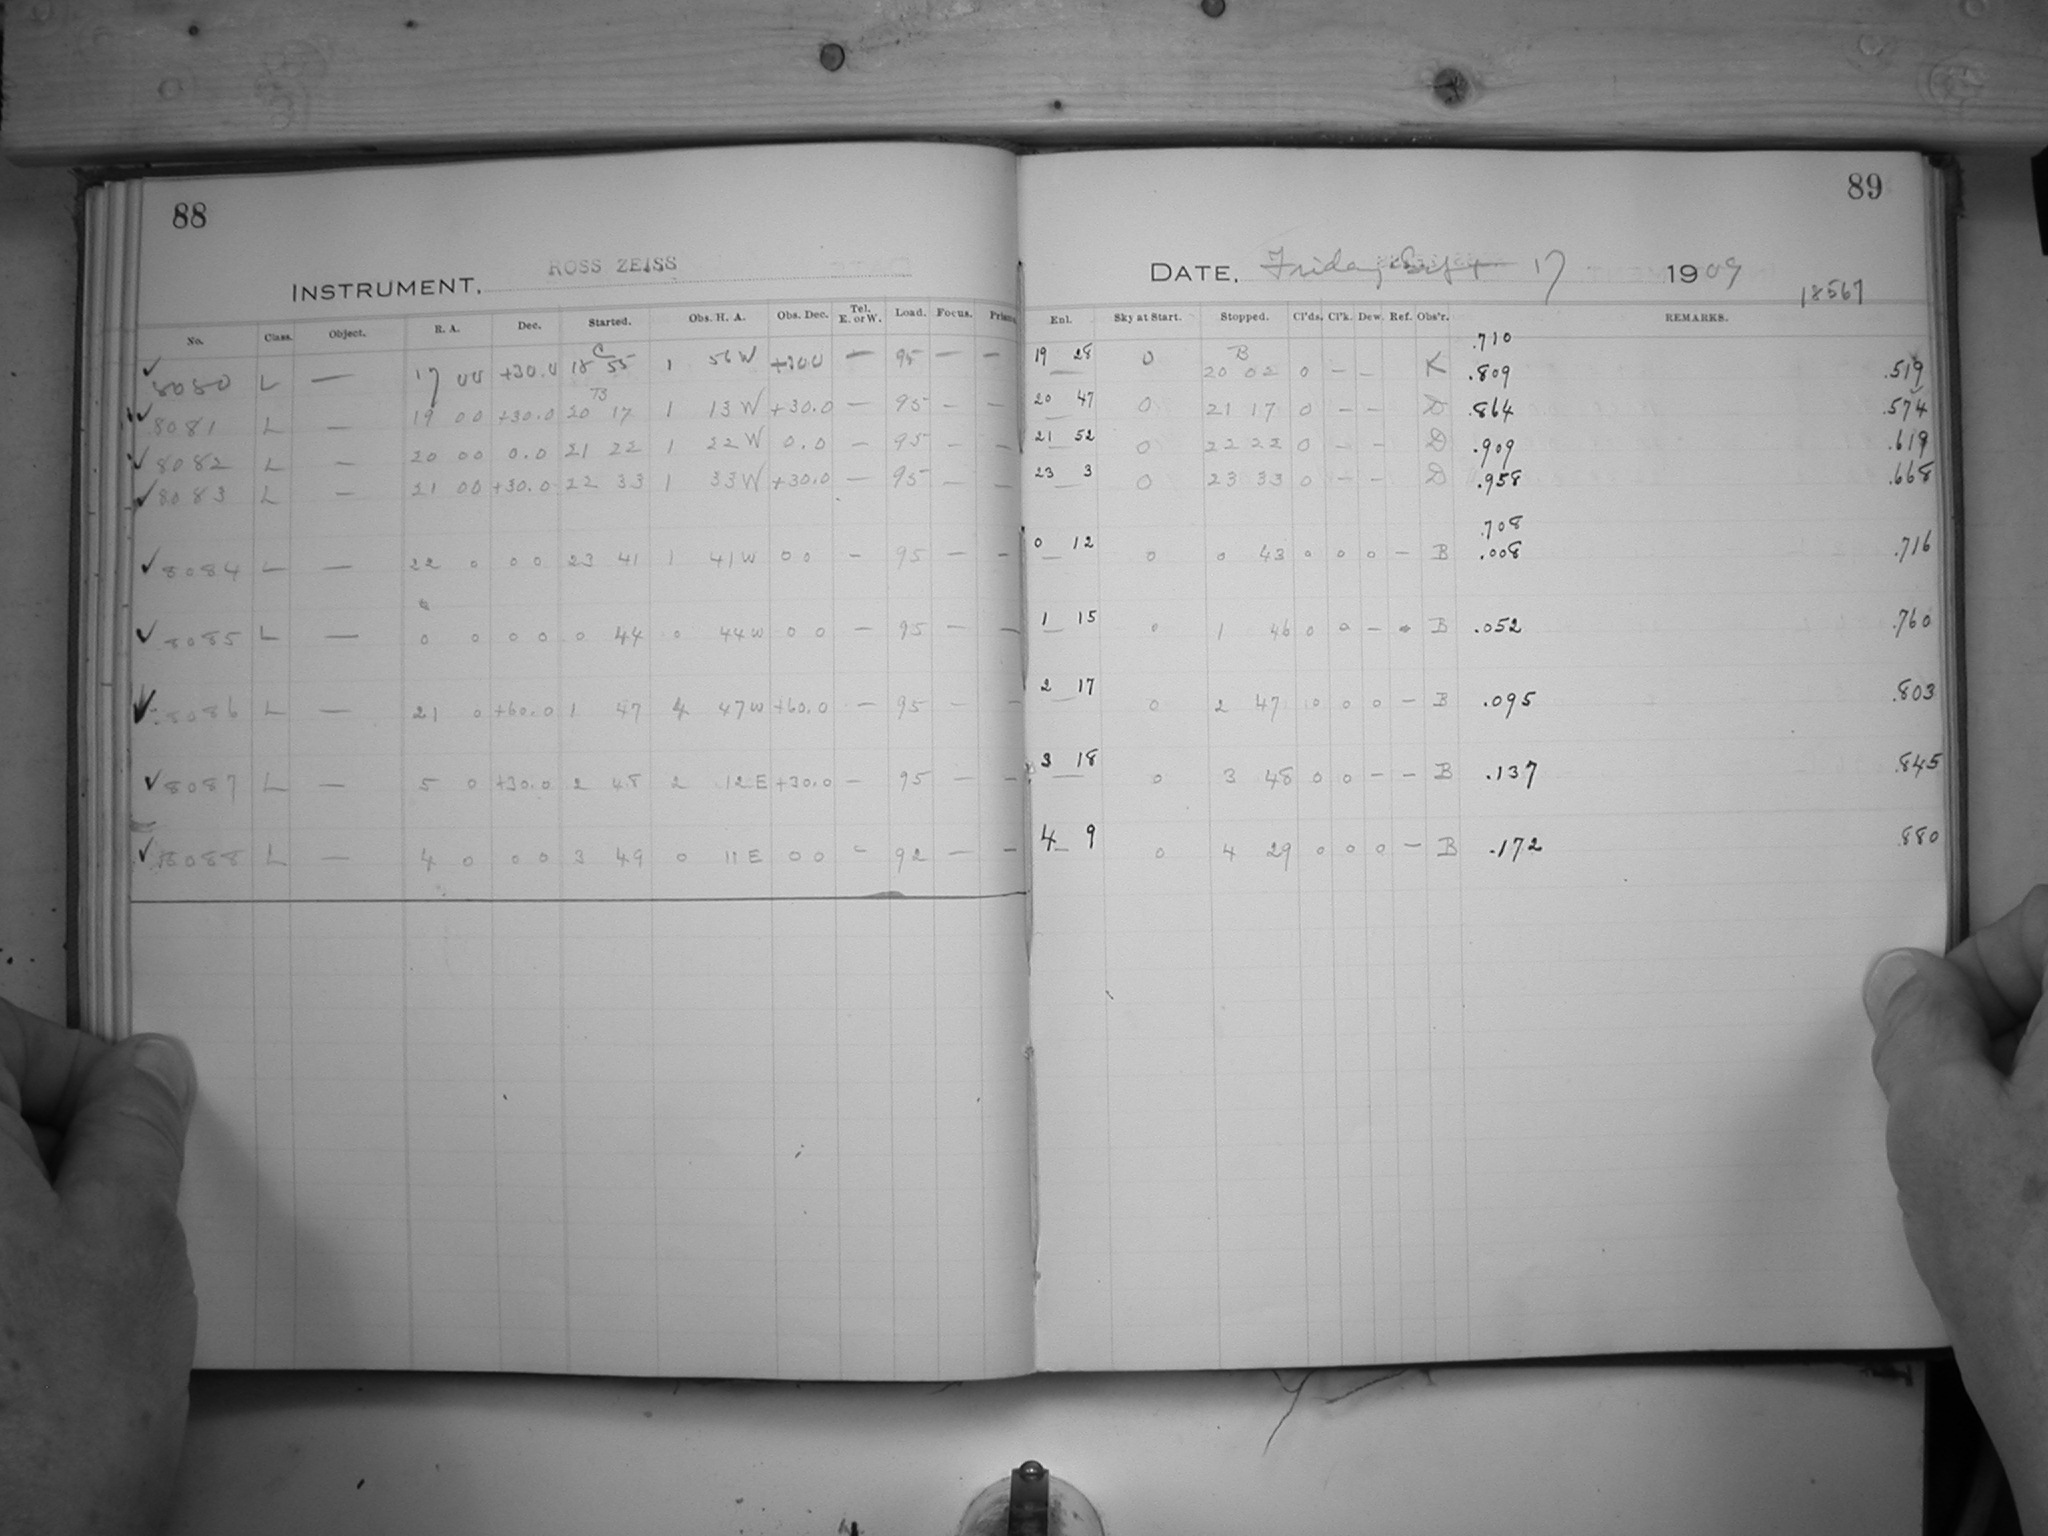 88
INSTRUMENT, ROSS ZEISS
No. Class. Object. R. A. Dec. Started. Obs. H. A. Obs. Dec. Tel. E. or W. Load. Focus. Prism
8080 L — 17 00 +30.0 18 C 55 1 56 W +30.0 — 95 — —
8081 L — 19 00 +30.0 20 B 17 1 13 W +30.0 — 95 — —
8082 L — 20 00 0.0 21 22 1 22 W 0.0 — 95 — —
8083 L — 21 00 +30.0 22 33 1 33 W +30.0 — 95 — —
8084 L — 22 0 0 0 23 41 1 41 W 0 0 — 95 — —
8085 L — 0 0 0 0 0 44 0 44 W 0 0 — 95 — —
8086 L — 21 0 +60.0 1 47 4 47 W +60.0 — 95 — —
8087 L — 5 0 +30.0 2 48 2 12 E +30.0 — 95 — —
8088 L — 4 0 0 0 3 49 0 11 E 0 0 — 92 — —
89
DATE, Friday, Sept 17 1909
18567
Enl. Sky at Start. Stopped. Cl'ds. Cl'k. Dew. Ref. Obs'r. REMARKS.
.710
19 28 0 B 20 02 0 — — K .809 .519
20 47 0 21 17 0 — — D .864 .574
21 52 0 22 22 0 — — D .909 .619
23 3 0 23 33 0 — — D .958 .668
.708
0 12 0 0 43 0 0 0 — B .008 .716
1 15 0 1 46 0 0 — B .052 .760
2 17 0 2 47 0 0 0 — B .095 .803
3 18 0 3 48 0 0 — — B .137 .845
4 9 0 4 29 0 0 0 — B .172 .880